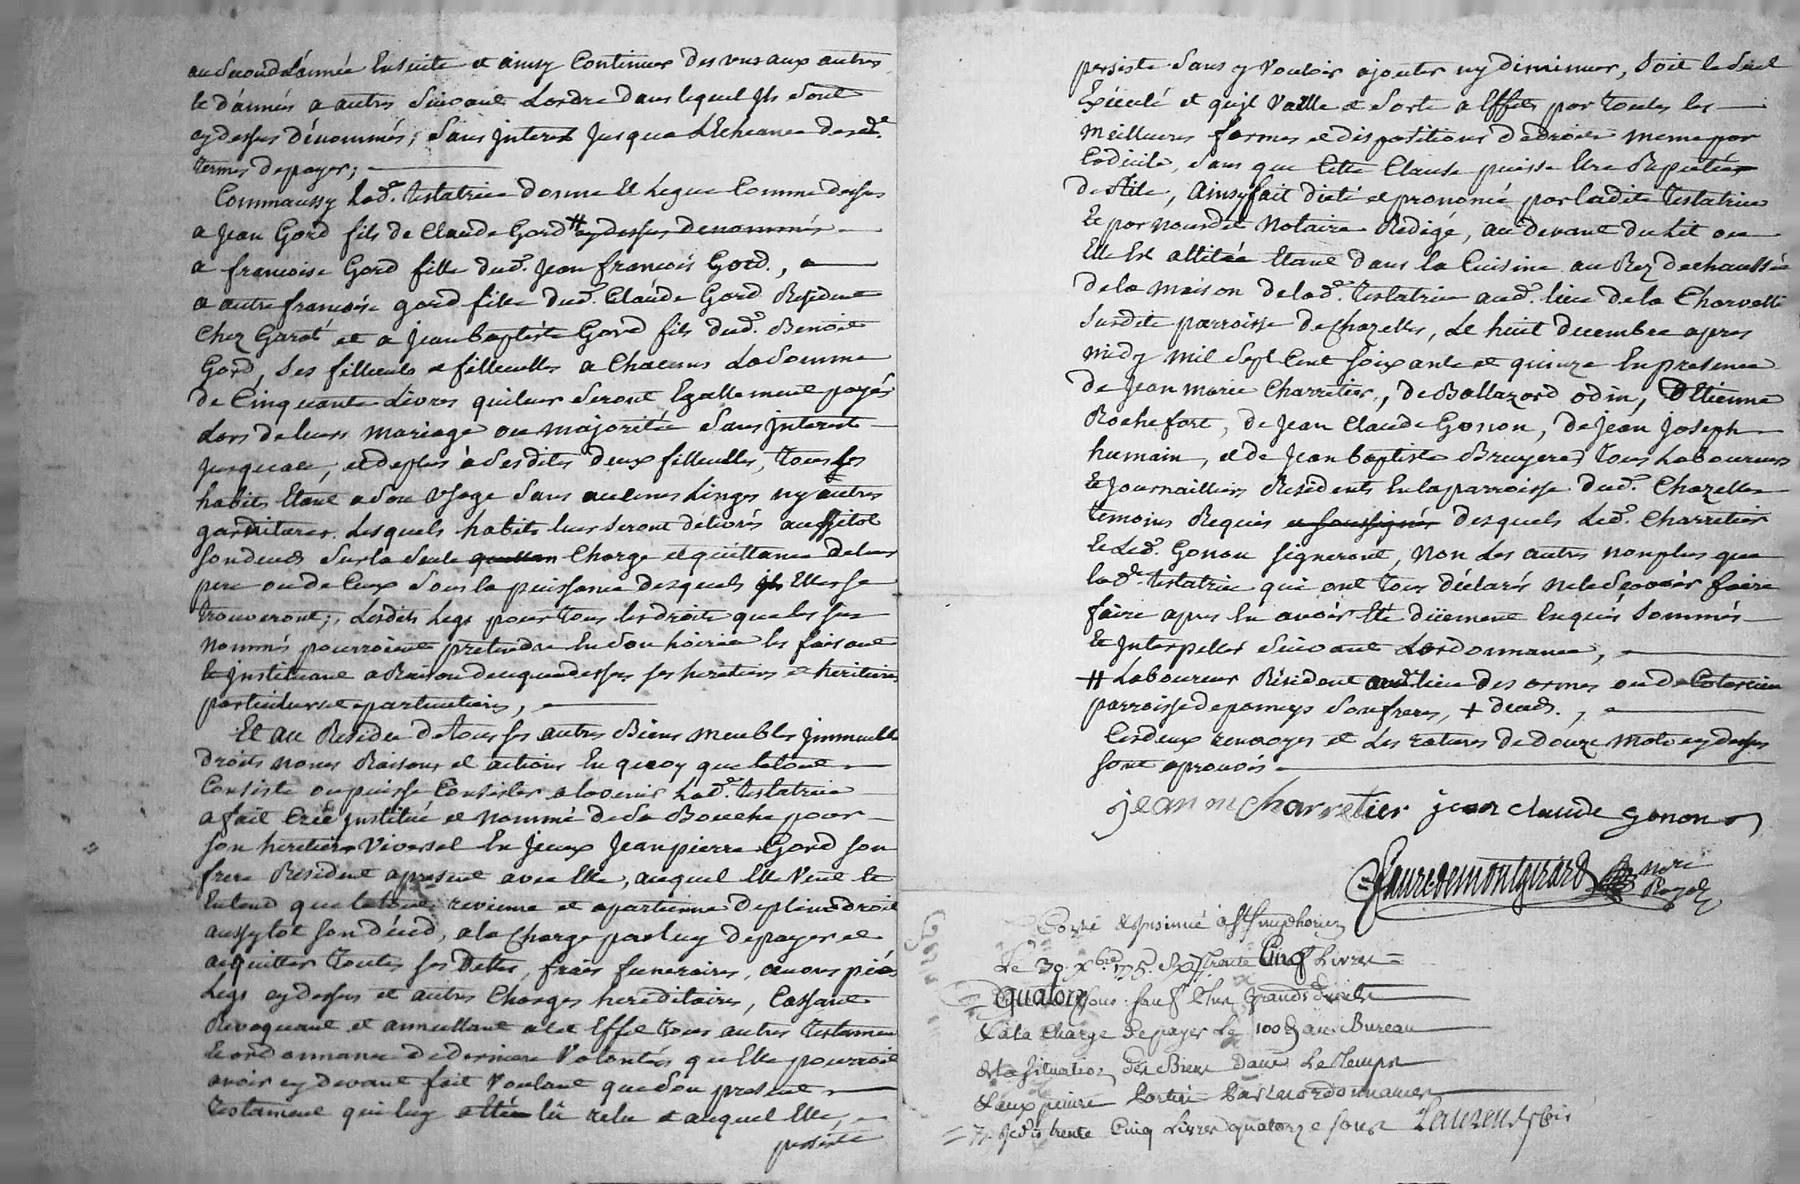 au Second d'année Ensuite et ainsy Continuer des uns aux autres
et d'année a autres Suivant Lordre dans lequel Ils Sont
cy dessus dénommés, Sans Interest Jusqua L'Echeance desd.
termes de payer;
Commaussy Lad.e testatrice donne Et Legue Comme dessus
a Jean Gord fils de Claude Gord # cy dessus denommés
a francoise Gord fille dud. Jean francois Gord, a
a autre francoise gord fille dud. Claude Gord Residente
Chez Garat et a Jean baptiste Gord fils dud. Benoit
Gord, Ses filleuls et filleulles a Chacuns La Somme
de Cinquante Livres qui leur Seront Egallement payés
Lors de leurs mariage ou majorité Sans Interest
Jusqualors, et de plus à Ses dites deux filleulles, tous Ses
habits Etant a Son Usage Sans aucunes Linges ny autres
garnitures. Lesquels habits leur Seront délivrés aussitot
Son deces Sur la Seule Charge et quittance de leur
pere ou de Ceux Sous la puissance desquels Elles Se
trouveront; Lesdits Legs pour tous les droits que les Sus
Nommés pourroient pretendre En Son hoirie les faisant
Et Instituant a Raison de ce que dessus ses heritiers et heritieres
particuliers et particulieres,
Et au Residu de tous ses autres Biens meubles Immeubles
droits noms Raisons et actions En quoy que le tout
Consiste ou puisse Consister a lavenir Lad.e testatrice
a fait Créé Institué et nommé de Sa Bouche pour
Son heritier Universel En Jceux Jean pierre Gord Son
frere Résident a present avec Elle, auquel Elle Veut Et
Entend que le tout revienne et apartienne de plein droit
aussytot Son déced, a la Charge par luy de payer et
acquitter toutes Ses Dettes, frais funeraires, œuvres pies
Legs cy dessus et autres Charges hereditaires, Cassant
Revoquant et annullant a cet Effet tous autres testament
Et ordonnance de derniere Volontés qu Elle pourroit
avoir cy devant fait Voulant que Son present
testament qui luy a été lû relu et auquel Elle,
persiste
persiste Sans y Vouloir ajouter ny diminuer, Soit le Seul
Exécuté et qu'jl Vaille et Sorte a Effets par toutes les
Meilleures formes et dispositions de droit meme par
Codicile, Sans que Cette Clause puisse Etre Reputée
de Stile, Ainsy fait dicté et prononcé par ladite testatrice
Et par nousdit Notaire Rédigé, au devant du Lit ou
Elle Est allitée Etant dans la Cuisine au Rez de chaussée
de la maison de lad.e testatrice aud. lieu de la Charvette
Susdite parroisse de Chazelles, Le huit decembre apres
midy mil Sept Cent Soixante et quinze En presence
de Jean marie Charretier, de Baltazard odin, d'Etienne
Rochefort, de Jean Claude Gonon, de Jean Joseph
humain, et de Jean baptiste Bruyere tous Laboureurs
Et Journailliers Residents En la parroisse dud. Chazelles
temoins Requis et soussignés desquels Led. Charretier
Et Led. Gonon signeront, Non Les autres non plus que
lad.e testatrice qui ont tous déclarés ne le Scavoir faire
faire apres En avoir Eté düement Enquis Sommés
Et Interpellés Suivant Lordonnance,
# Laboureur Résident aud. lieu des ormes
parroisse de pomeys Son frere, + deced.,
Les deux renvoyes et Les ratures de douze mots cy dessus
Sont aprouvés
jean m charretier jean claude gonon
Faure de montgirard nore
Royal
Controlé & Insinué à St Simphorien
Le 30. Xbre 1775. Reçu trente Cinq Livres
Quatorze Sous. Sauf Plus grands droits
& a la charge de payer Le 100e au Bureau
de la Situation des Biens Dans Le temps
& aux peines portées Par Les ordonnances
trente Cinq Livres quatorze Sous